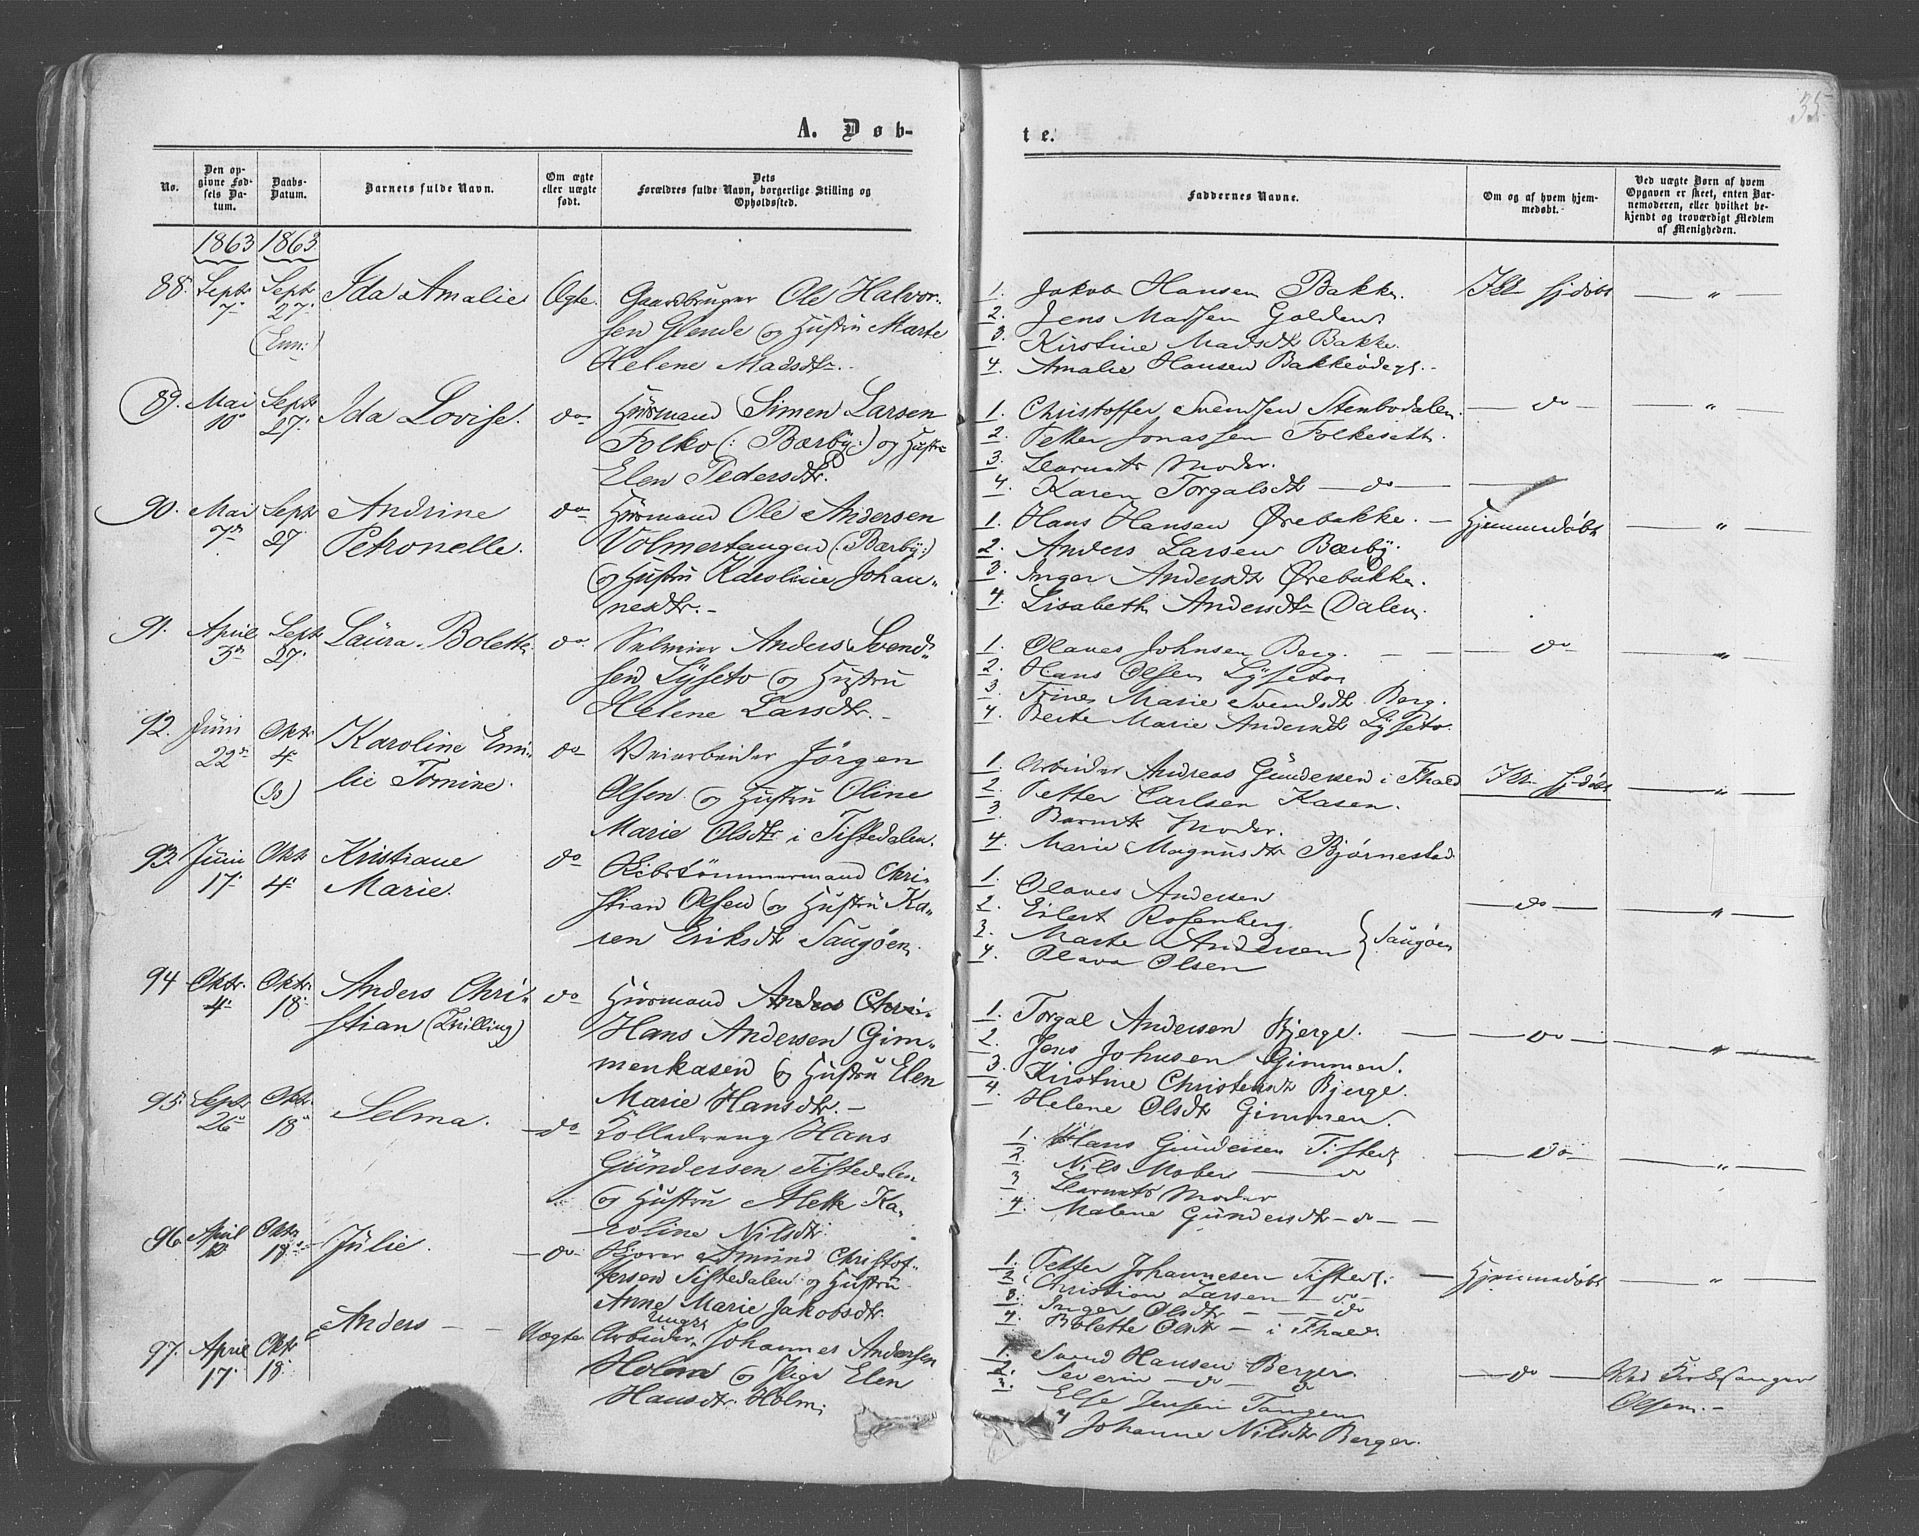 35
A. Døb-
te.
No.
Den op-
givne Fød-
sels Da-
tum.
Daabs-
Datum.
Barnets fulde Navn.
Om ægte
eller uægte
født.
Dets
Forældres fulde Navn, borgerlige Stilling og
Opholdssted.
Faddernes Navne.
Om og af hvem hjem-
medøbt.
Ved uægte Børn af hvem
Opgaven er skeet, enten Bar-
nemoderen, eller hvilket be-
kjendt og troværdigt Medlem
af Menigheden.
1863 1863
88. Septr 7. Septr 27. (Enn:) Ida Amalie Ægte.
Gaardbruger Ole Halvor-
sen Glende og Hustru Marte
Helene Madsdtr.
1. Jakob Hansen Bakke.
2. Jens Madsen
3. Kirstine Madsdtr Bakke.
4. Amalie Hansen Bakkeødeg.
Ikke hj-døbt
— " —
89. Mai 10 Septr 27. Ida Lovise. do
Huusmand Simen Larsen
Folko (: Bærby:) og Hustru
Elen Pedersdtr.
1. Christoffer Svendsen Stenbodalen.
2. Petter Jonassen Folkesett.
3. Barnets Moder.
4. Karen Torgalsdtr — do —
— do —
— " —
90. Mai 7de Septr 27 Andrine
Petronelle. do
Huusmand Ole Andersen
Volmertangen (: Bærby:)
og Hustru Karoline Johan-
nesdtr. -
1. Hans Hansen Ørebakke.
2. Anders Larsen Bærby.
3. Inger Andersdtr Ørebakke.
4. Lisabeth Andersdtr Dalen.
Hjemmedøbt
— " —
91. April 3de Septr 27. Laura Bolette do
Selveier Anders Svend-
sen Lyseto og Hustru
Helene Larsdtr. -
1. Olaves Johnsen Berg.
2. Hans Olsen Lyseto.
3. Trine Marie Svendsdtr Berg.
4. Berte Marie Andersdtr Lyseto.
— do —
— " —
92. Juni 22de Oktr 4. (do) Karoline Emi-
lie Tomine. do
Veiarbeider Jørgen
Olsen og Hustru Oline
Marie Olsdtr i Tistedalen.
1. Arbeider Andreas Gundersen i Fhald
2. Petter Carlsen Kasen.
3. Barnets Moder.
4. Marie Magnusdtr Bjørnestad
Ikke hj-døbt
— " —
93. Juni 17. Okt 4. Kristiane
Marie. do
Skibstømmermand Chri-
stian Olsen og Hustru Ka-
ren Eriksdtr Saugøen.
1. Olaves Andersen
2. Eilert Rosenberg
3. Marte Andersen
4. Olava Olsen
Saugøen
— do —
— " —
94 Oktr. 4. Oktr. 18. Anders Chri-
stian (Tvilling) do
Huusmand Anders Chri-
Hans Andersen Gim-
menkasen og Hustru Elen
Marie Hansdtr. -
1. Torgal Andersen Bjerge.
2. Jens Johnsen Gimmen.
3. Kirstine Christensdtr Bjerge.
4. Helene Olsdtr Gimmen.
— do —
— " —
95. Septr 26 Oktr. 18. Selma. do
Kolledreng Hans
Gundersen Tistedalen
og Hustru Alette Ka-
roline Nilsdtr.
1. Hans Gundersen Tisted.
2. Nils Mober — do
3. Barnets Moder
4. Malene Gundersdtr — do —
— do —
— " —
96. April 12. Oktr. 18. Julie. — do
Skriver Amund Christof-
fersen Tistedalen og Hustru
Anne Marie Jakobsdtr.
1. Petter Johannesen Tisted.
2. Christian Larsen — do —
3. Inger Olsdtr — do
4. Bolette Olsdtr — i Fhald.
Hjemmedøbt
— " —
97. April 17. Oktr. 18. Anders — Uægte
Ungk.
Arbeider Johannes Andersen
Holm og Pige Elen
Hansdtr. Holm.
1. Svend Hansen Berger
2. Severin — do — do
3. Else Jensen Tangen
4 Johanne Nilsdtr Berger.
— do —
Ved Kirkesanger
Olsen. -